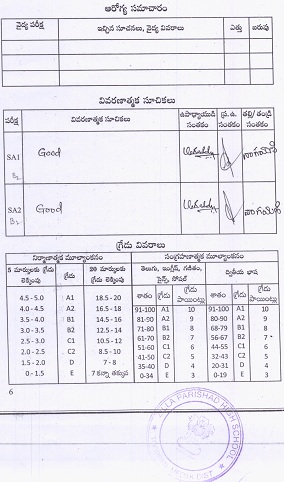 ఆరోగ్య సమాచారం
వైద్య పరీక్ష ఇచ్చిన సూచనలు, వైద్య వివరాలు ఎత్తు బరువు
వివరణాత్మక సూచికలు
పరీక్ష వివరణాత్మక సూచికలు ఉపాధ్యాయుడి సంతకం ప్ర.ఉ. సంతకం తల్లి/తండ్రి సంతకం
SA1 Good
B2
SA2 Good
B2
గ్రేడు వివరాలు
నిర్మాణాత్మక మూల్యాంకనం సంగ్రహణాత్మక మూల్యాంకనం
5 మార్కులకు లెక్కింపు గ్రేడు 20 మార్కులకు లెక్కింపు తెలుగు, ఇంగ్లీష్, గణితం, సైన్స్, సోషల్ ద్వితీయ భాష
శాతం గ్రేడు గ్రేడు పాయింట్లు శాతం గ్రేడు గ్రేడు పాయింట్లు
4.5 - 5.0 A1 18.5 - 20 91-100 A1 10 90-100 A1 10
4.0 - 4.5 A2 16.5 - 18 81-90 A2 9 80-90 A2 9
3.5 - 4.0 B1 14.5 - 16 71-80 B1 8 68-79 B1 8
3.0 - 3.5 B2 12.5 - 14 61-70 B2 7 56-67 B2 7
2.5 - 3.0 C1 10.5 - 12 51-60 C1 6 44-55 C1 6
2.0 - 2.5 C2 8.5 - 10 41-50 C2 5 32-43 C2 5
1.5 - 2.0 D 7 - 8 35-40 D 4 20-31 D 4
0 - 1.5 E 7 కన్నా తక్కువ 0-34 E 3 0-19 E 3
6
ZILLA PARISHAD HIGH SCHOOL